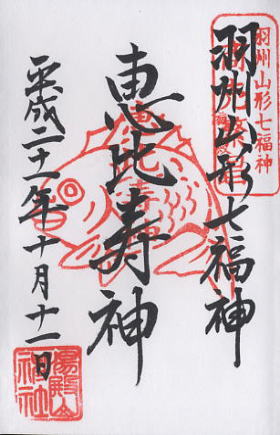 羽州山形七福神
羽州山形七福神
恵比寿神
平成二十一年十月十一日
湯殿山
神社